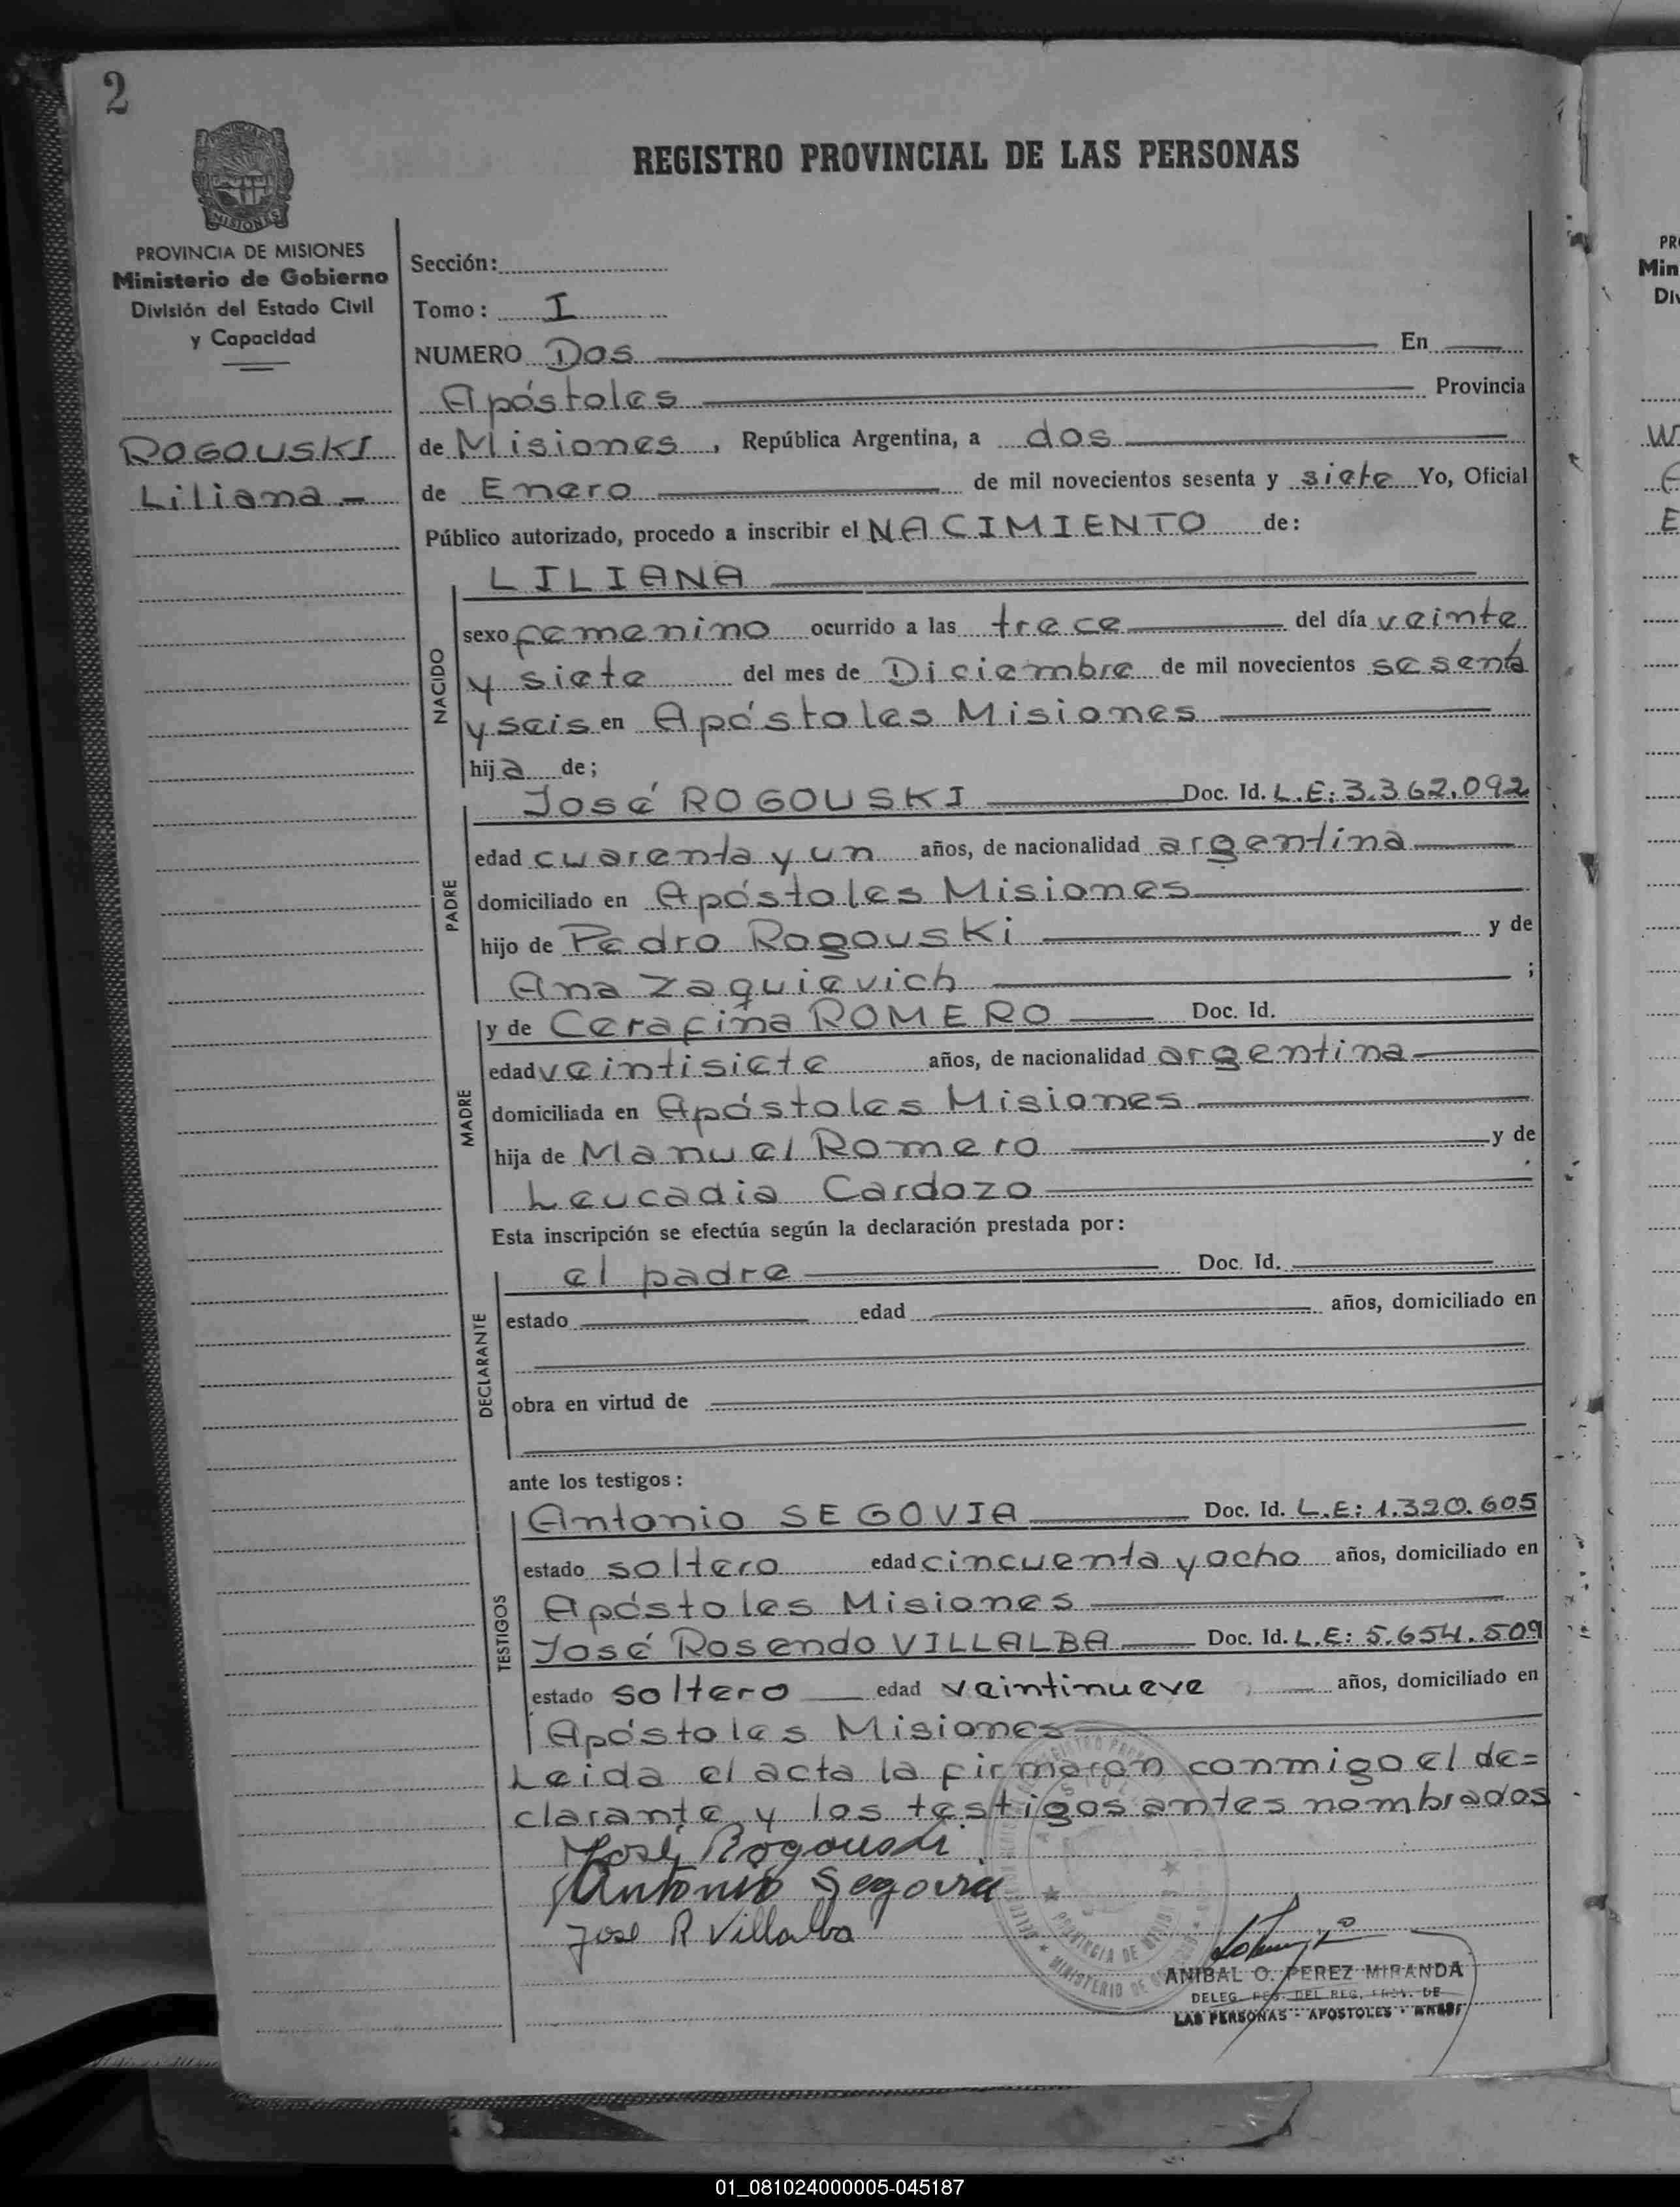 2
REGISTRO PROVINCIAL DE LAS PERSONAS
MISIONES
PROVINCIA DE MISIONES
Ministerio de Gobierno
División del Estado Civil
y Capacidad
ROGOUSKI
Liliana -
Sección:
Tomo: I
NUMERO Dos En
Apóstoles Provincia
de Misiones, República Argentina, a dos
de Enero de mil novecientos sesenta y siete Yo, Oficial
Público autorizado, procedo a inscribir el NACIMIENTO de:
LILIANA
NACIDO
sexo femenino ocurrido a las trece del día veinte
y siete del mes de Diciembre de mil novecientos sesenta
y seis en Apóstoles Misiones
hija de;
PADRE
José ROGOUSKI Doc. Id. L.E: 3.362.092
edad cuarenta y un años, de nacionalidad argentina
domiciliado en Apóstoles Misiones
hijo de Pedro Rogouski y de
Ana Zaquievich ;
MADRE
y de Cerafina ROMERO Doc. Id.
edad veintisiete años, de nacionalidad argentina
domiciliada en Apóstoles Misiones
hija de Manuel Romero y de
Leucadia Cardozo .
Esta inscripción se efectúa según la declaración prestada por:
DECLARANTE
el padre Doc. Id.
estado edad años, domiciliado en
obra en virtud de
ante los testigos:
TESTIGOS
Antonio SEGOVIA Doc. Id. L.E: 1.320.605
estado soltero edad cincuenta y ocho años, domiciliado en
Apóstoles Misiones
José Rosendo VILLALBA Doc. Id. L.E: 5.654.509
estado soltero edad veintinueve años, domiciliado en
Apóstoles Misiones
Leida el acta la firmaron conmigo el de=
clarante y los testigos antes nombrados
José Rogouski
Antonio Segovia
Jose R Villalba
PROVINCIA DE
MINISTERIO DE
ANIBAL O. PEREZ MIRANDA
DELEG. REG. DEL REG. PROV. DE
LAS PERSONAS - APOSTOLES -
PR
Min
Div
W
E
01_081024000005-045187